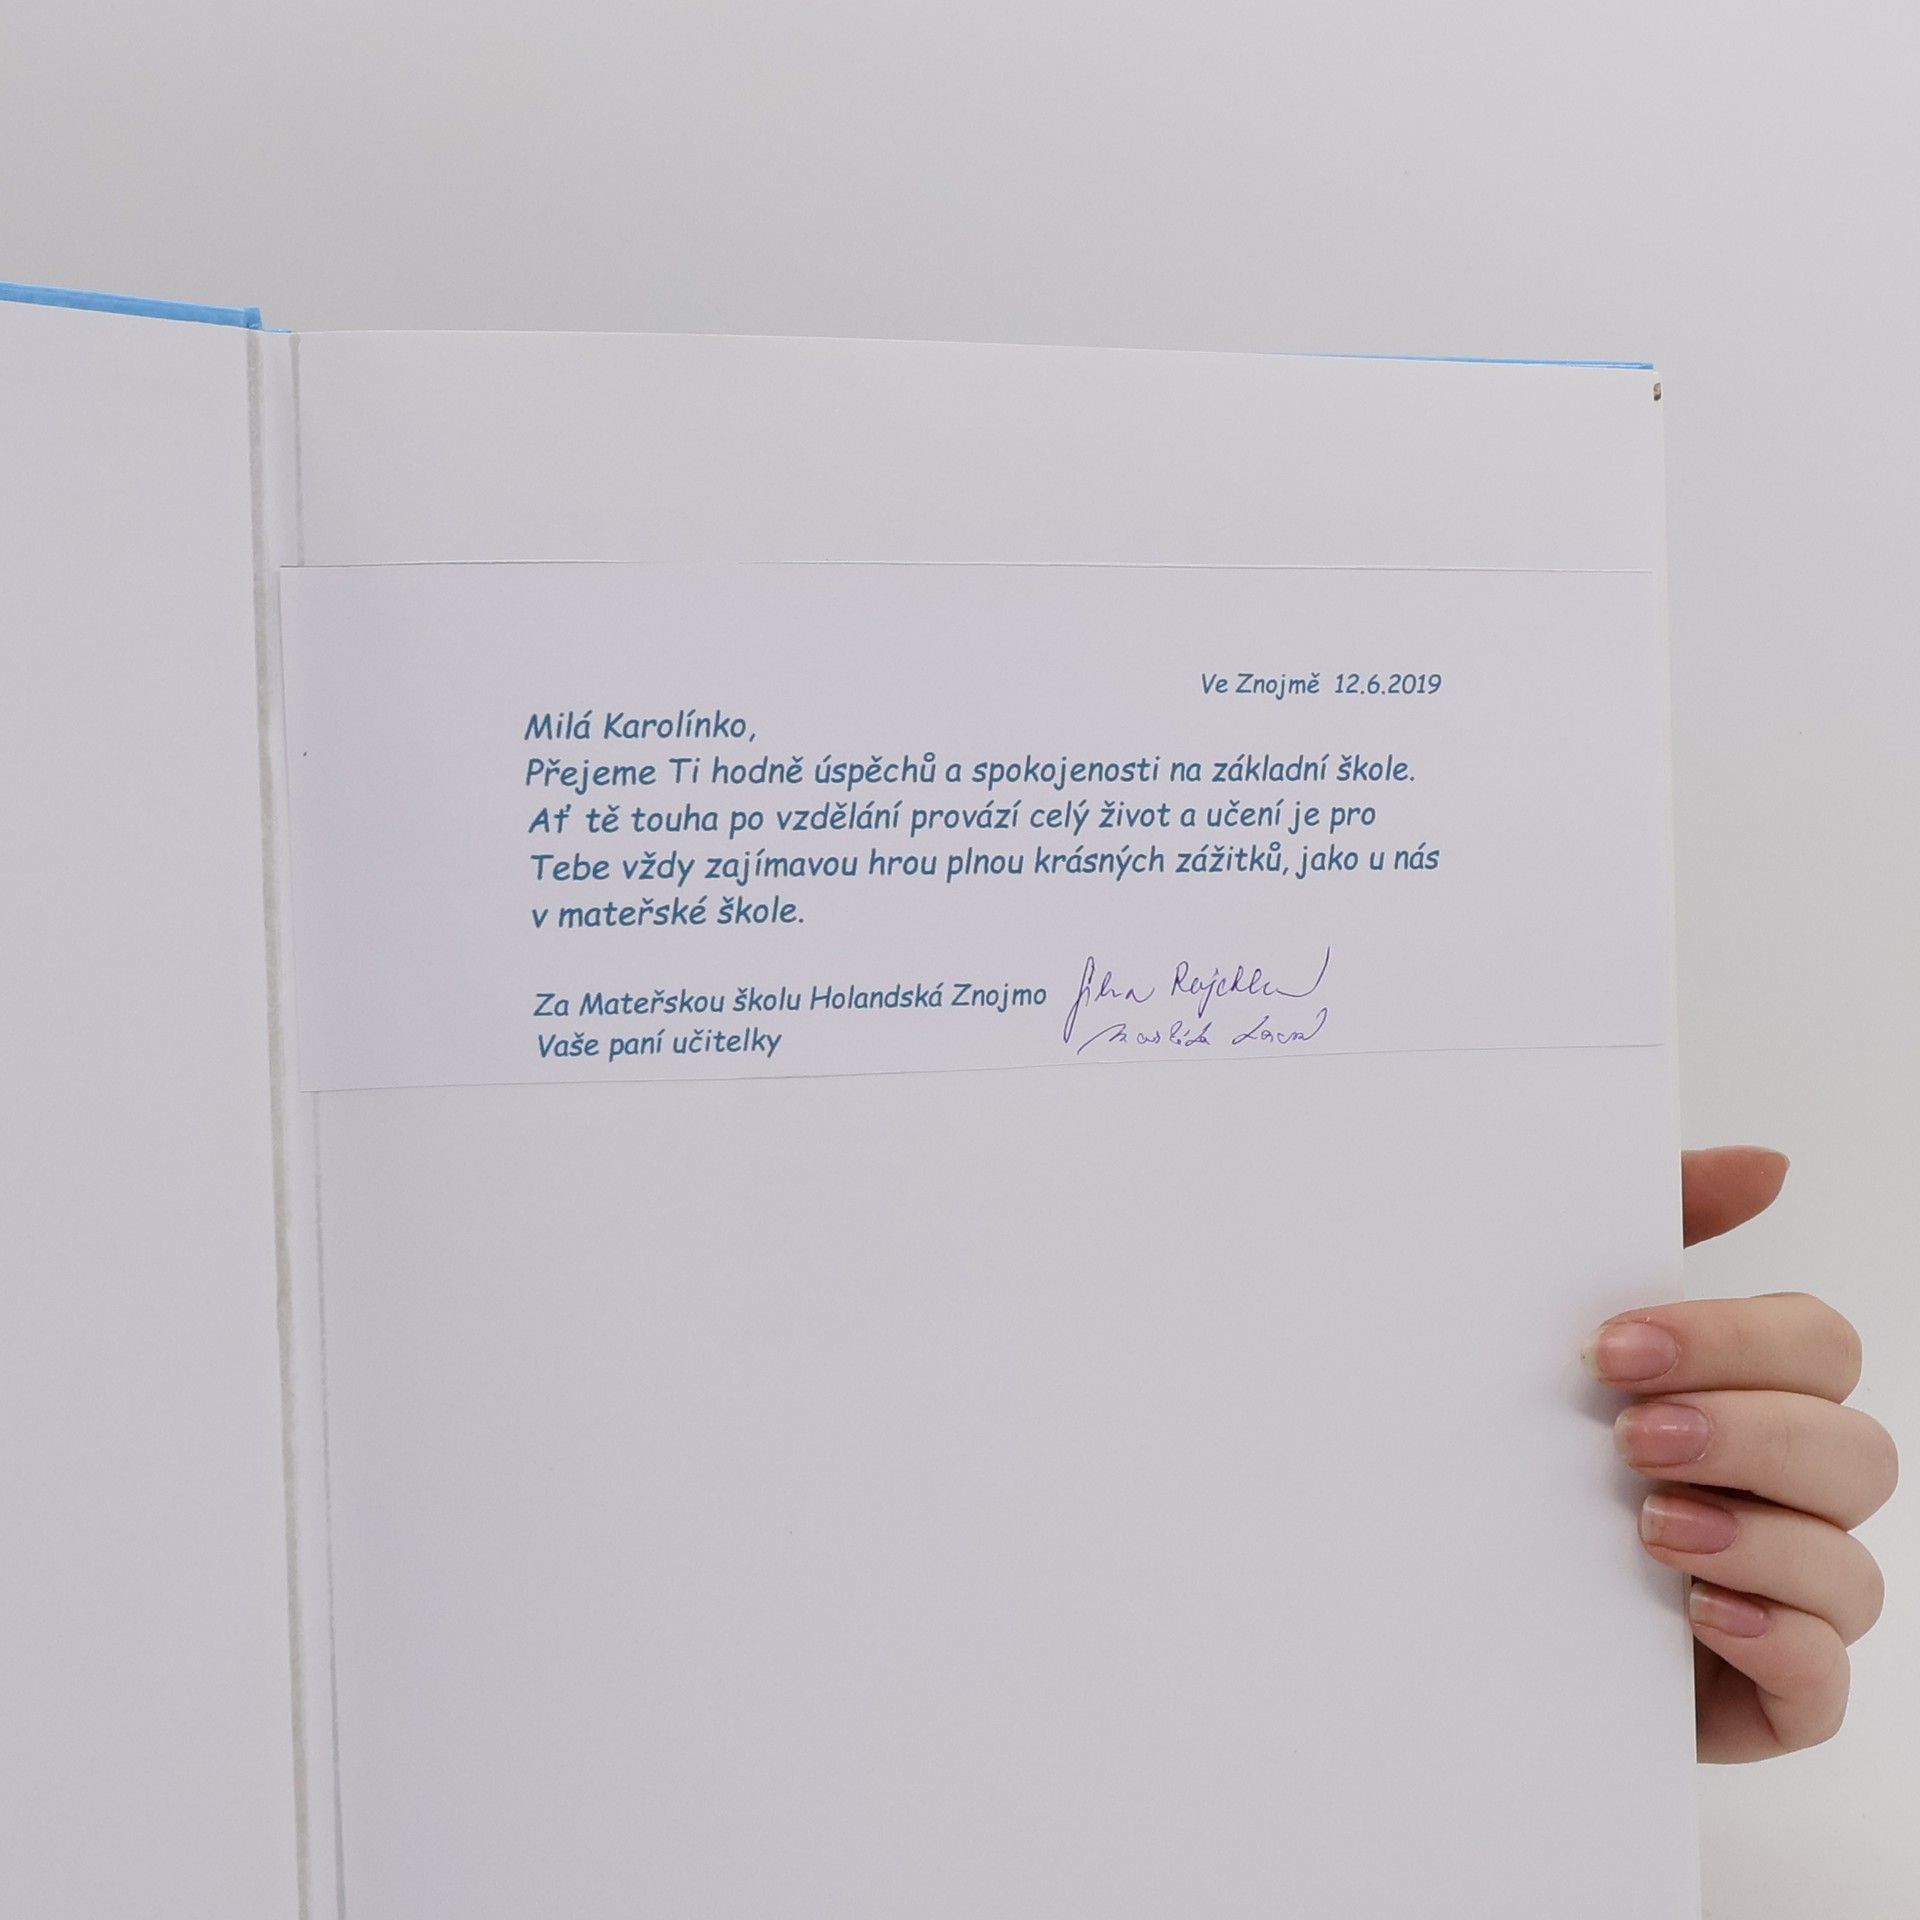 Ve Znojmě 12.6.2019
Milá Karolínko,
Přejeme Ti hodně úspěchů a spokojenosti na základní škole.
Ať tě touha po vzdělání provází celý život a učení je pro
Tebe vždy zajímavou hrou plnou krásných zážitků, jako u nás
v mateřské škole.
Za Mateřskou školu Holandská Znojmo
Vaše paní učitelky